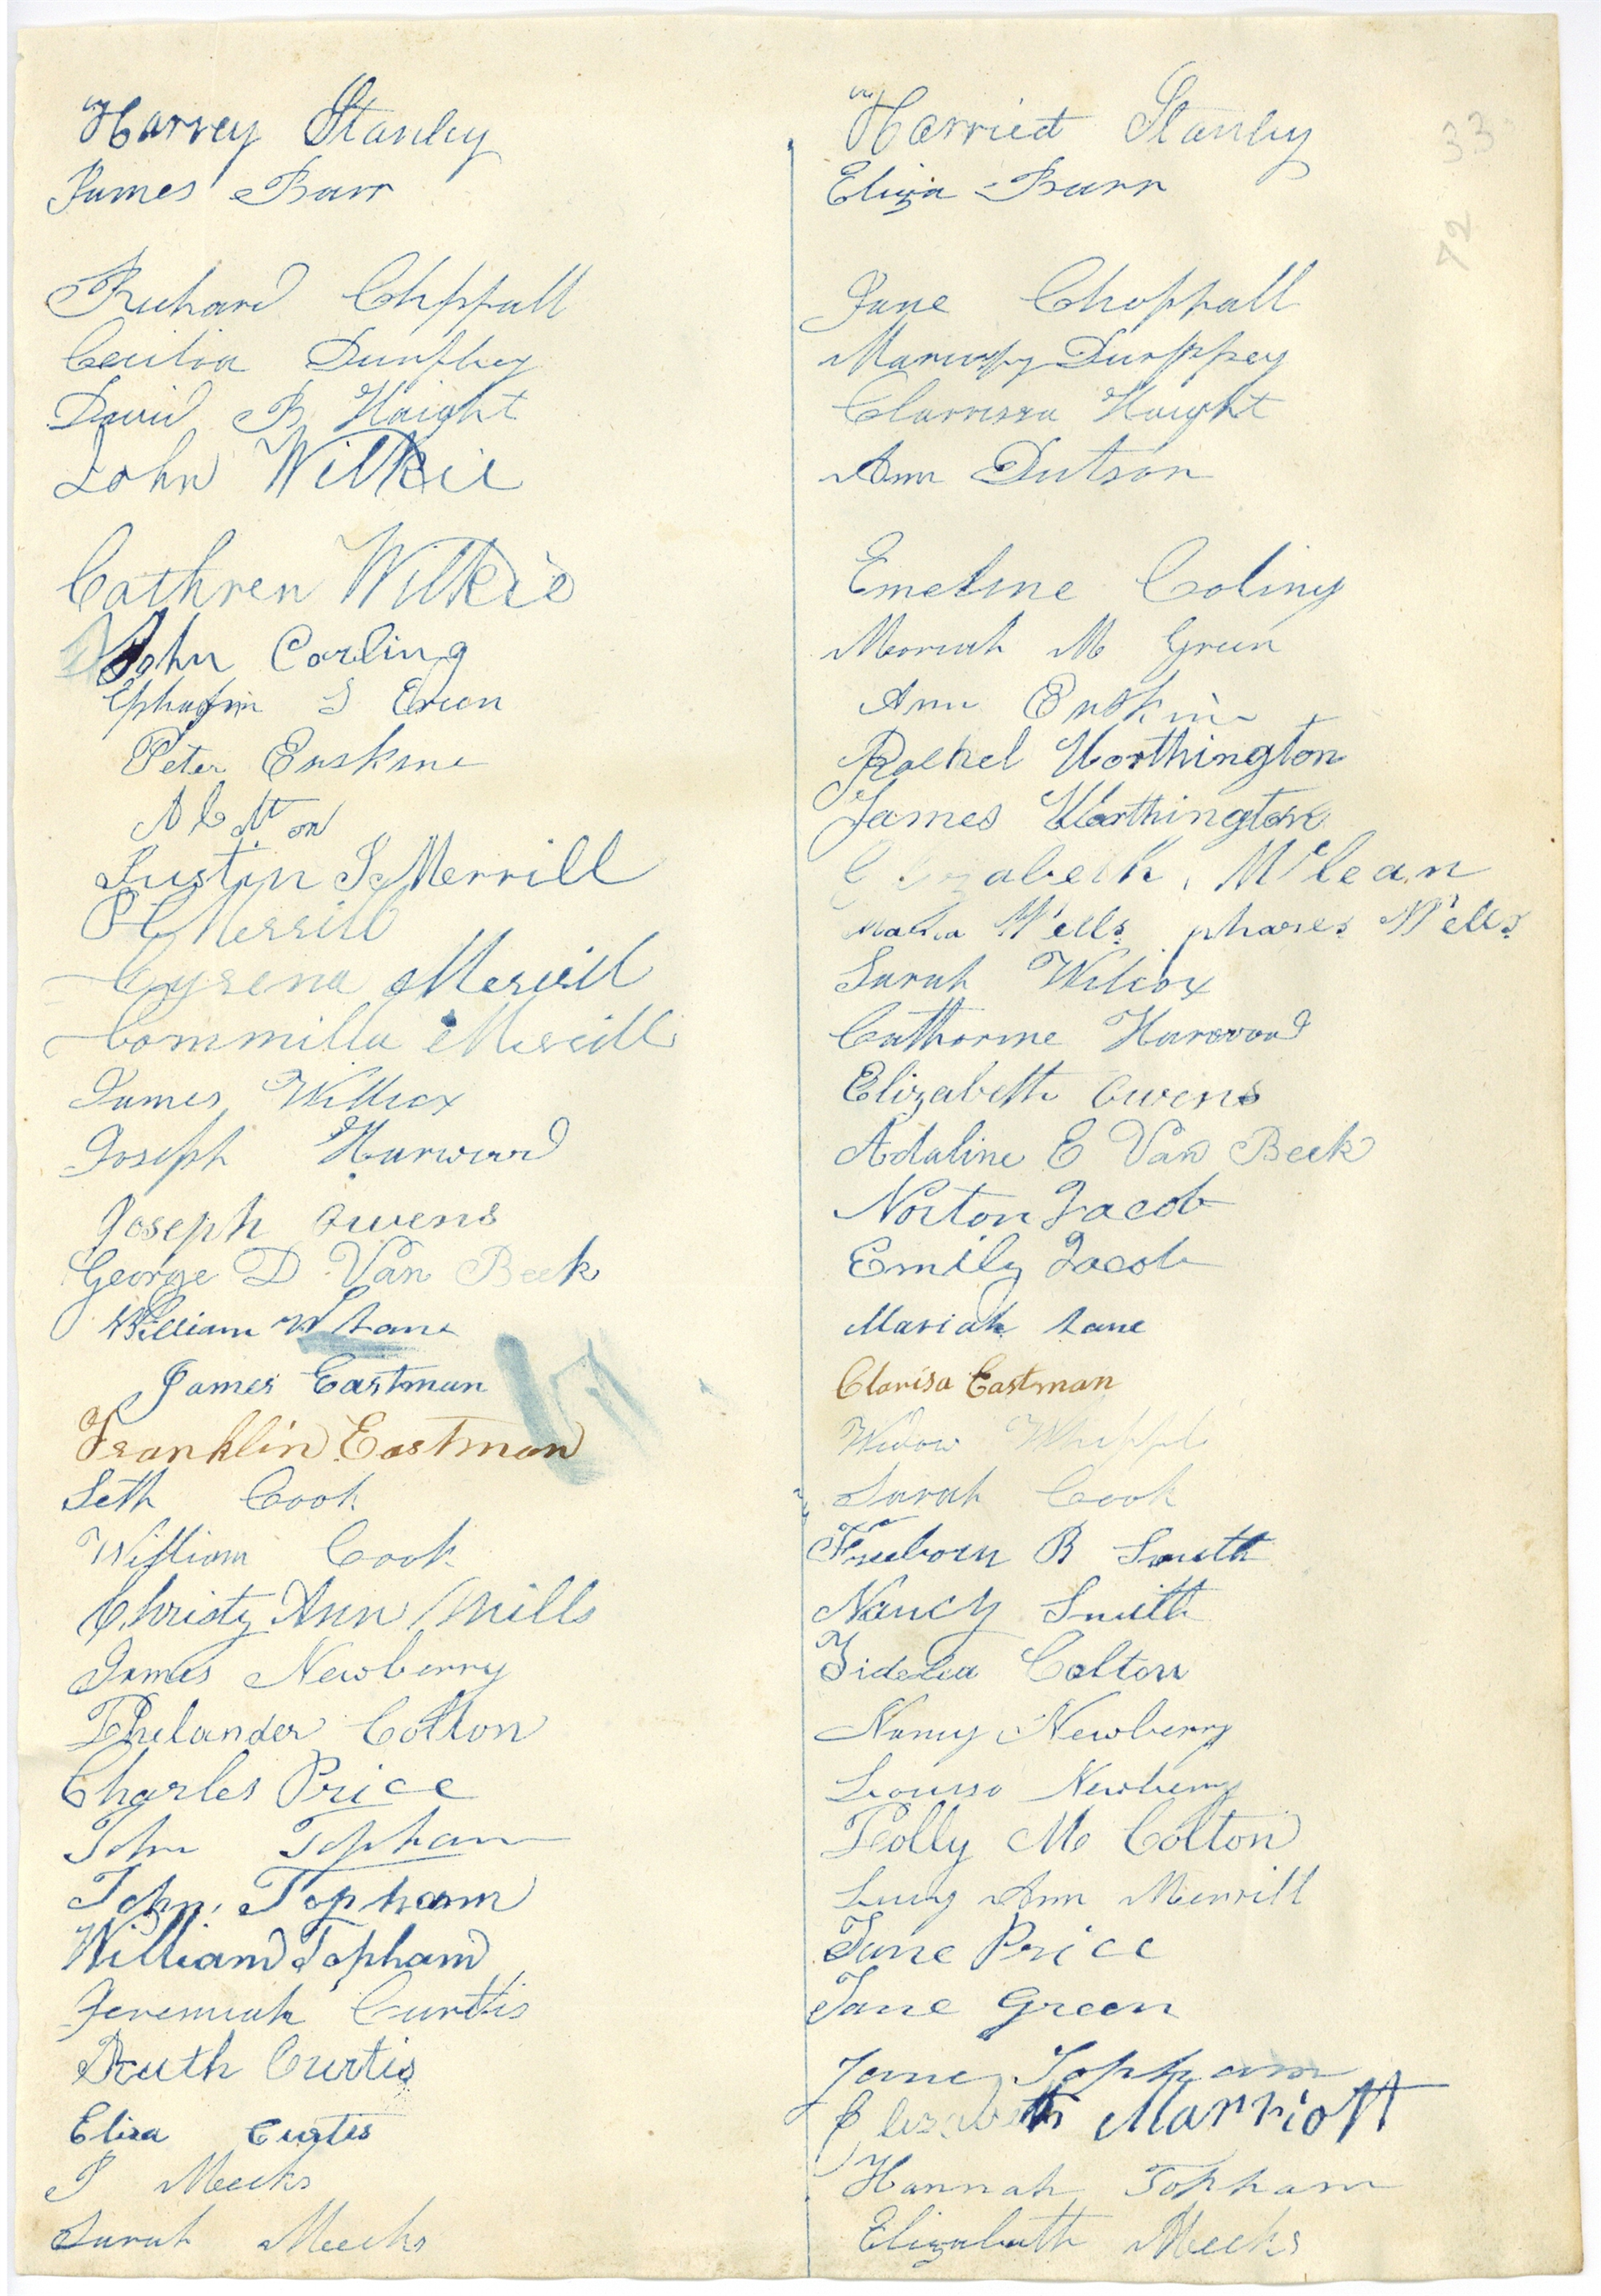 Harvey Stanley
James Barr
Richard Chppall
Cecilia Dunfhey
David B Haight
John Wilkie
Cathren Wilkie
John Carling
Ephagim S Green
Peter Erskine
Justin J Merrill
P C Merrill
Cyrena Merrill
Commilla Merrill
James Willicx
Joseph Harwood
Joseph Owens
George D Van Beek
William W Lane
James Eastman
Franklin Eastman
Seth Cook
William Cook
Christy Ann Mills
James Newberry
Philander Colton
Charles Price
John Topham
John Topham
William Topham
Jeremiah Curtis
Ruth Curtis
Eliza Curtis
P Meeks
Sarah Meeks
Harriet Stanley
Eliza Barr
Jane Choppall
Durppey
Clarrissa Haight
Ann Dutson
Emeline Coling
Moriah M Green
Ann Erskine
Rachel Worthington
James Worthington
Elizabeth Mclean
Maria Wells phares Wells
Sarah Wilcox
Catharine Harwood
Elizabeth Owens
Adaline E Van Beek
Norton Jacob
Emily Jacob
Mariah Lane
Clarisa Eastman
Widow Whippl
Sarah Cook
Freeborn B Smith
Nancy Smith
Fidelia Colton
Nancy Newberry
Lousso Newberry
Polly M Colton
Lucy Ann Merrill
Jane Price
Jane Green
Jane Topham
Elizabeth Marriott
Hannah Topham
Elizabeth Meeks
33
72